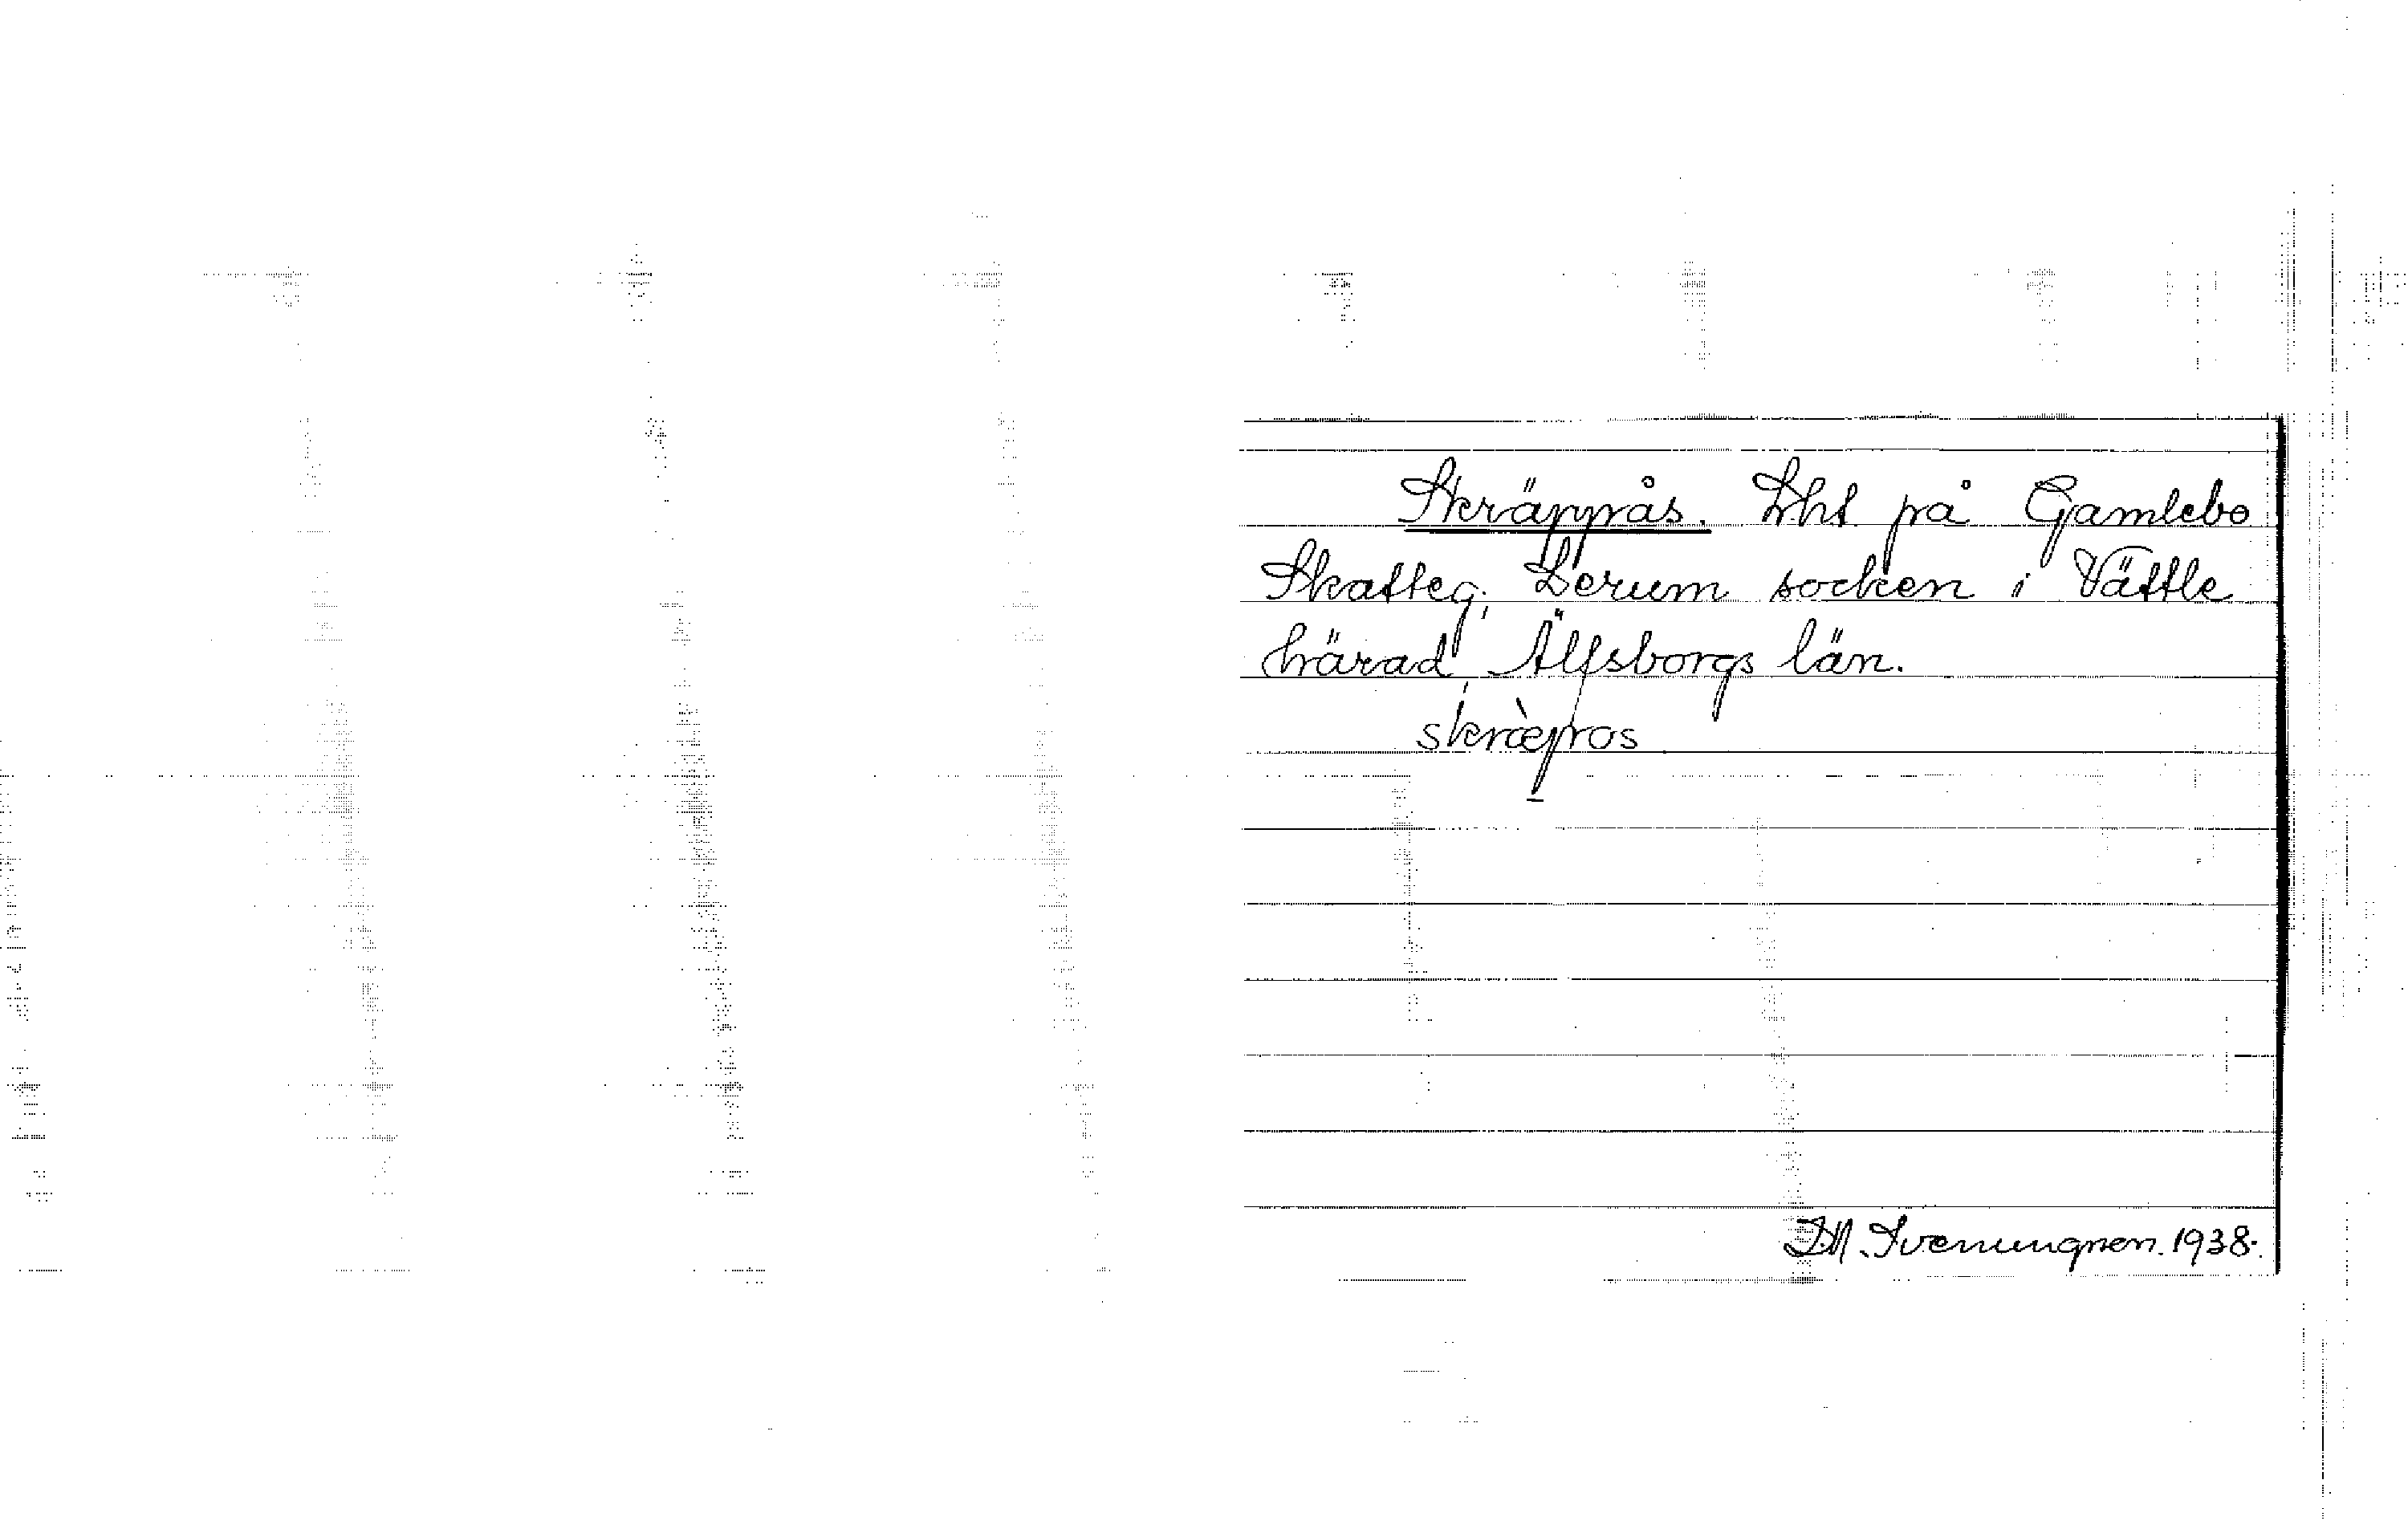 Skräppås. Lht på Gamlebo
Skatteg. Lerum socken i Vättle
härad, Älfsborgs län.
skræ̀pos
Svenungsen. 1938.